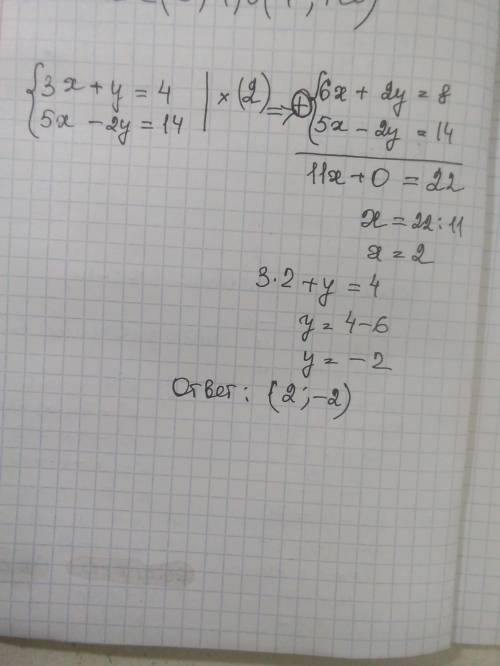 {3x + y = 4 | × (2) => ⊕ {6x + 2y = 8
{5x - 2y = 14 {5x - 2y = 14
11x + 0 = 22
x = 22 : 11
x = 2
3 · 2 + y = 4
y = 4 - 6
y = - 2
Ответ: (2; -2)